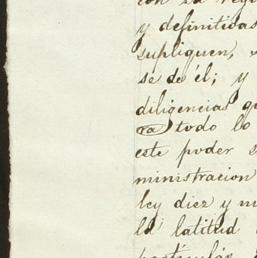 con su
y definitivas
supliquen,
se de él; y
diligencias
ra todo lo
este poder
ministracion
ley diez y
la latitud